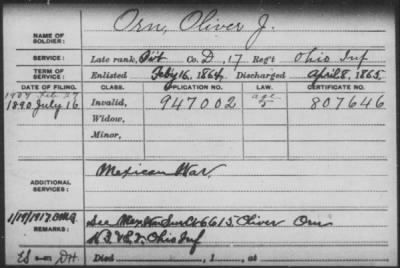 NAME OF SOLDIER: Orn, Oliver J.
SERVICE: Late rank, Pvt Co. D, 17 Reg't Ohio Inf
TERM OF SERVICE: Enlisted Feb'y 16, 1864, Discharged April 8, 1865
DATE OF FILING. CLASS. APPLICATION NO. LAW. CERTIFICATE NO.
1907 Feb 27 age
1890 July 16 Invalid, 947002 5 807646
Widow,
Minor,
ADDITIONAL SERVICES: Mexican War.
1/19/1917 See Mex War Sur Ct 6615 Oliver Orn
Ohio Inf
Died , 1 , at